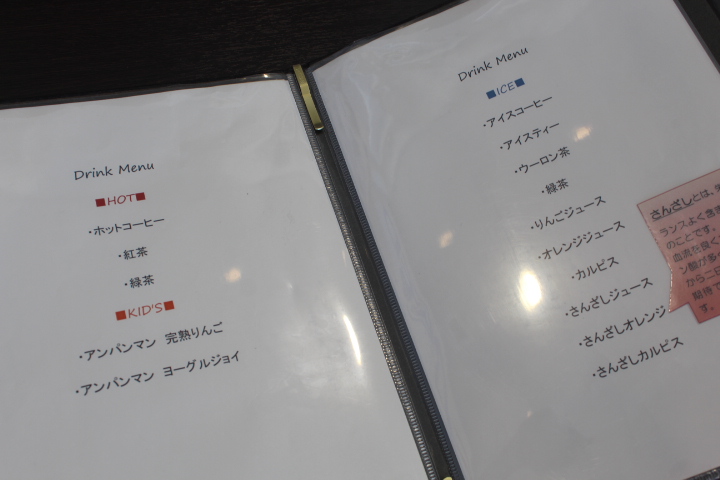 Drink Menu
■HOT■
・ホットコーヒー
・紅茶
・緑茶
■KID'S■
・アンパンマン 完熟りんご
・アンパンマン ヨーグルジョイ
Drink Menu
■ICE■
・アイスコーヒー
・アイスティー
・ウーロン茶
・緑茶
・りんごジュース
・オレンジジュース
・カルピス
・さんざしジュース
・さんざしオレンジ
・さんざしカルピス
さんざしとは、
ランスよく含
のことです。
血流を良く
ン酸が多
から二日
期待で
す。